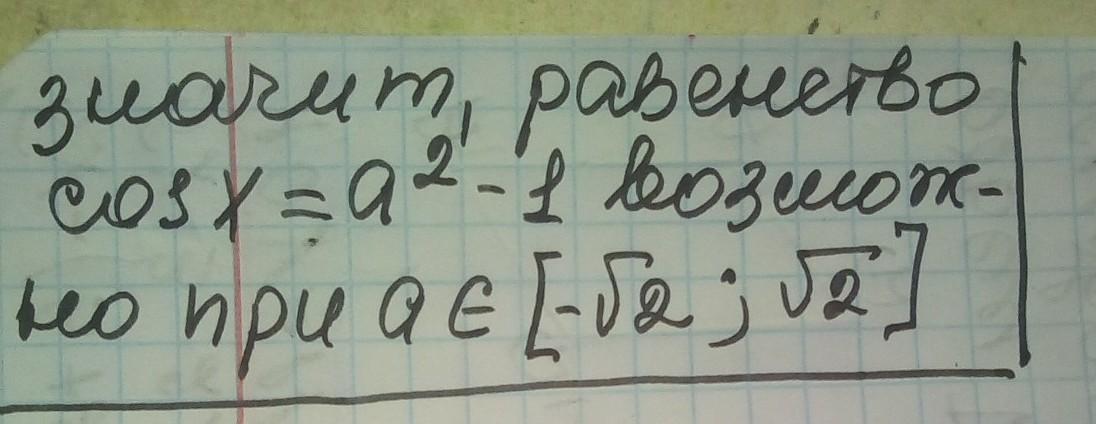 значит, равенство
cos x = a² - 1 возмож-
но при a ∈ [-√2 ; √2]